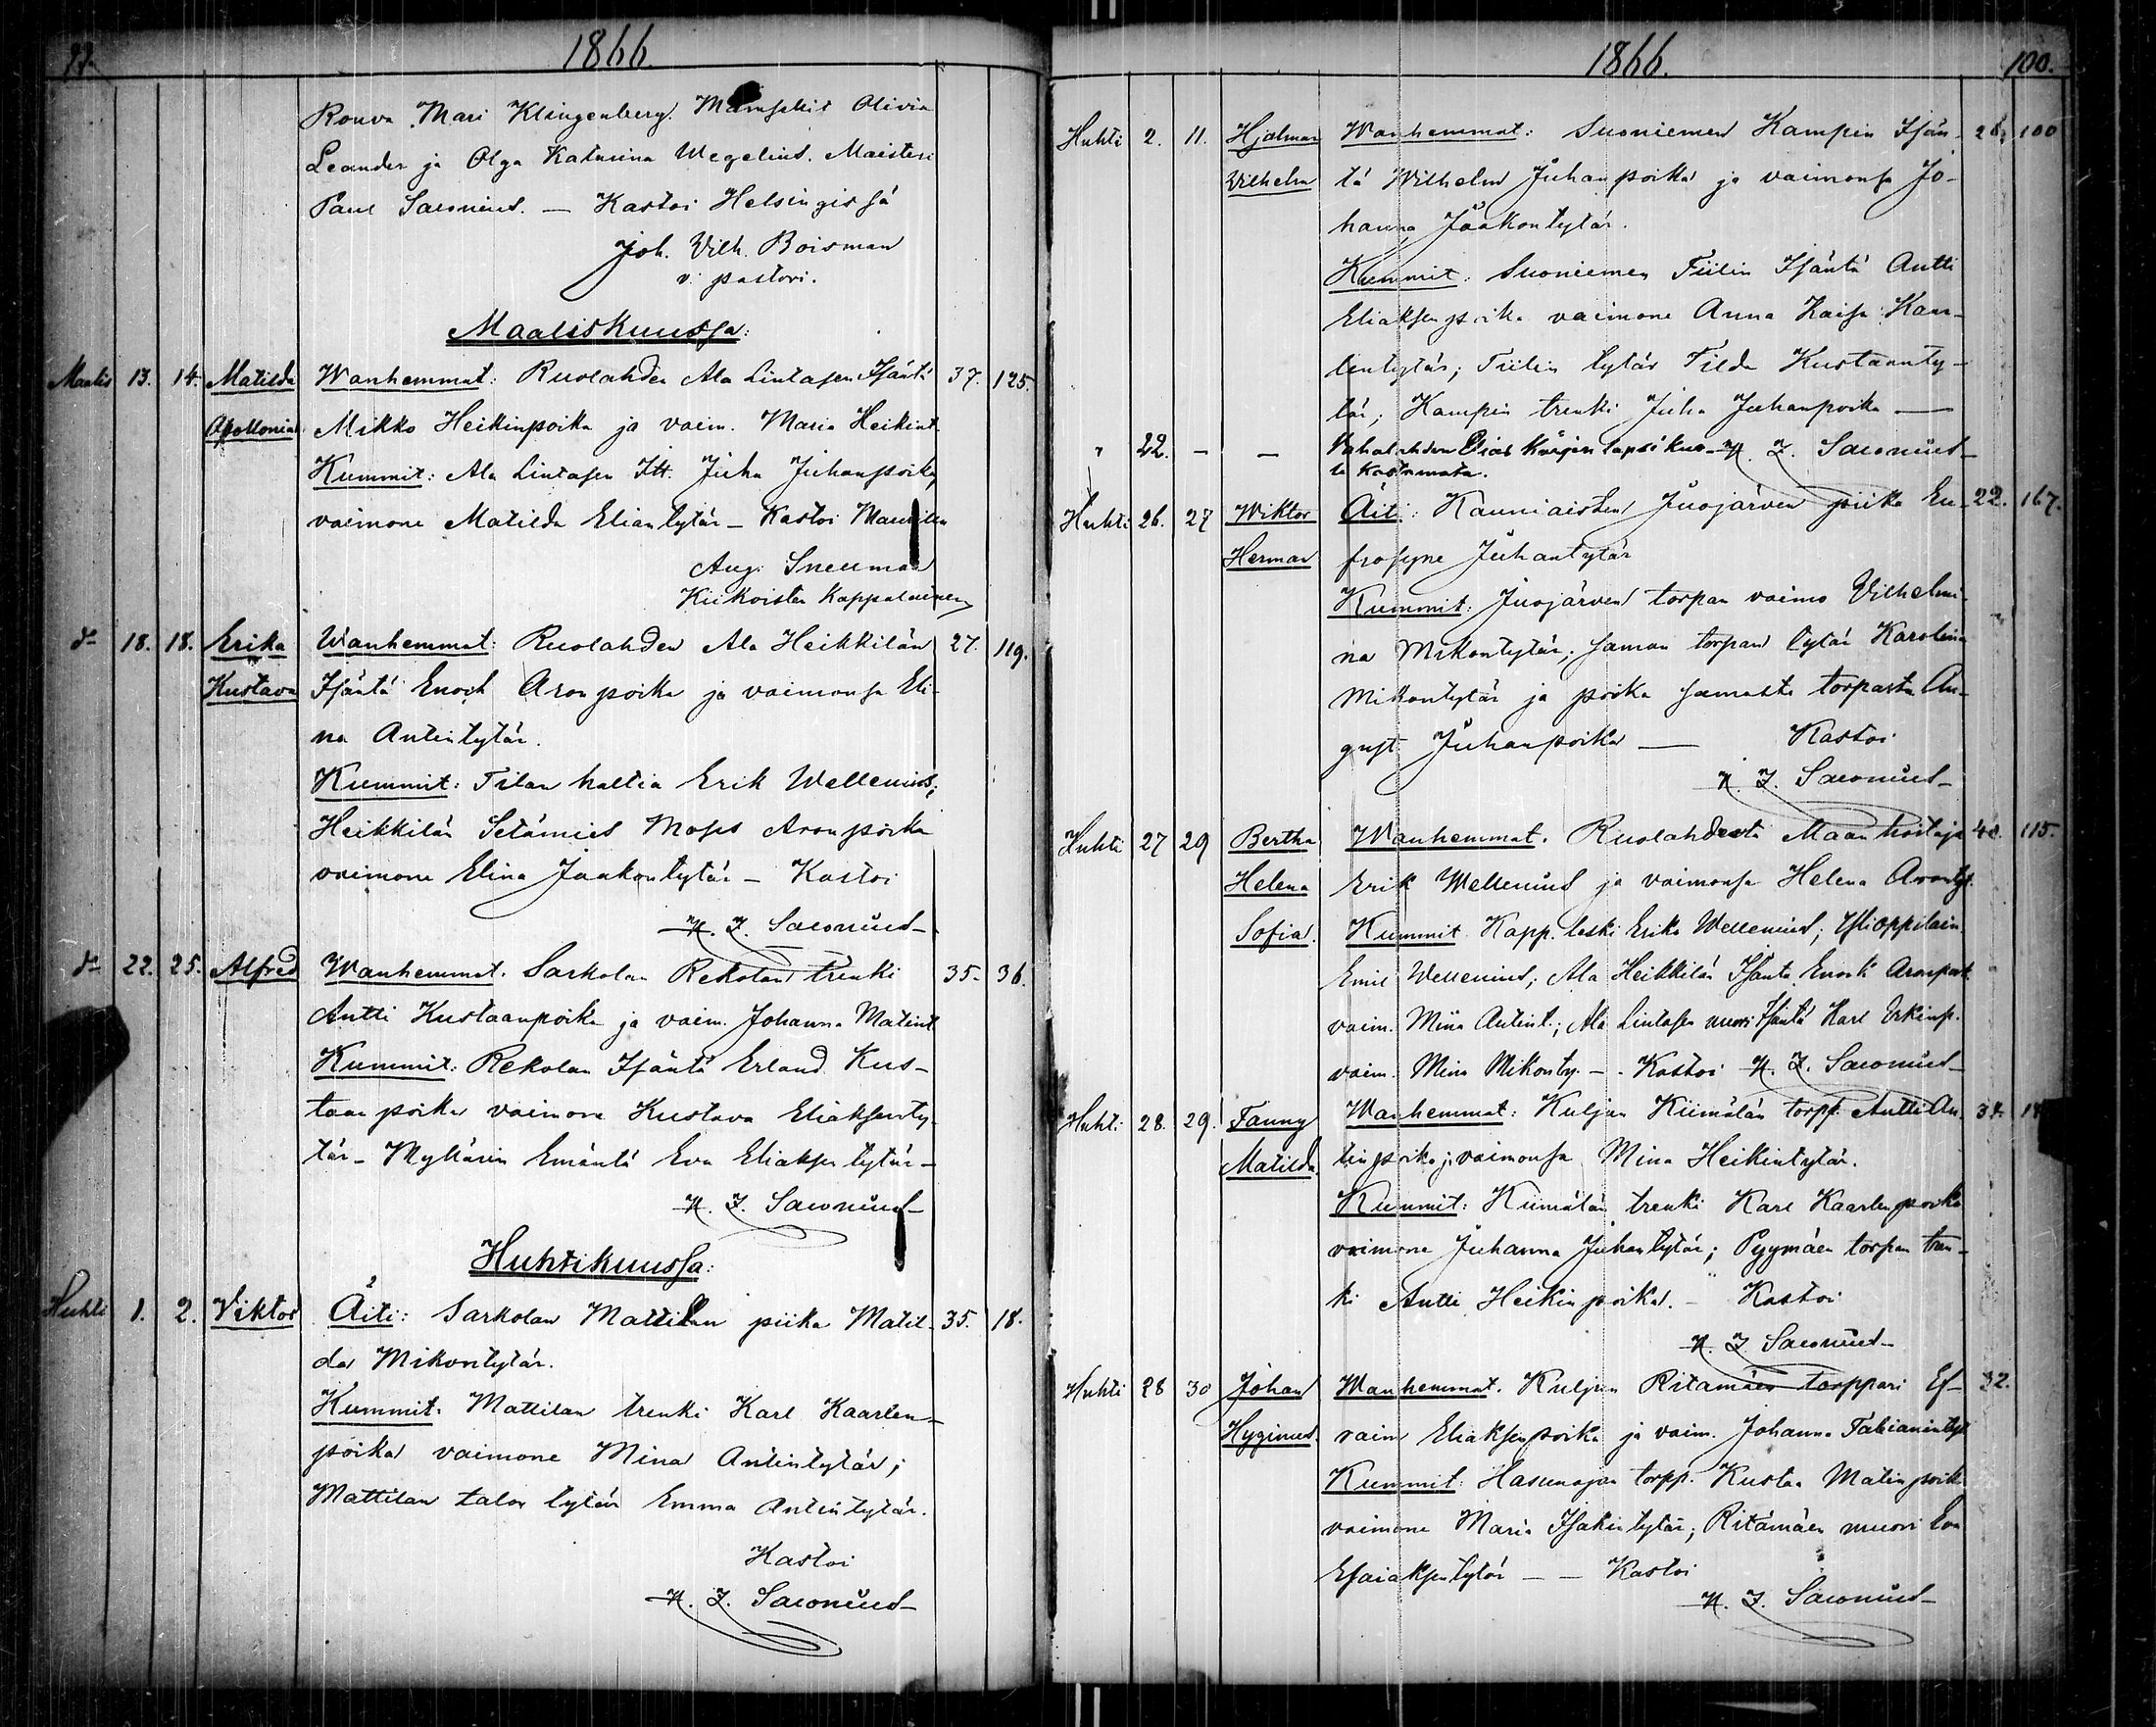 99.
1866.
Rouva Mari Klingenberg. Mamselit Olivia
Leander ja Olga Katarina Wegelius. Maisteri
Paul Salonius. — Kastoi Helsingissä
Joh. Vilh. Boisman
v. pastori.
Maaliskuussa:
Maalis 13. 14. Matilda Wanhemmat: Ruolahden Ala Lintasen Isäntä 37. 125.
Apollonia Mikko Heikinpoika ja vaim. Maria Heikint.
Kummit: Ala Lintasen Itt. Juha Juhanpoika,
vaimone Matilda Eliantytär — Kastoi
Aug. Sneuman
Kiikoisten Kappalainen
do 18. 18. Erika Wanhemmat: Ruolahden Ala Heikkilän 27. 119.
Kustava Isäntä Enoch Aronpoika ja vaimonsa Eli-
na Antintytär.
Kummit: Tilan haltia Erik Wellenius;
Heikkilän Setämies Moses Aronpoika
vaimone Elina Jaakontytär — Kastoi
N. J. Salonius
do 22. 25. Alfred Wanhemmat. Sarkolan Rekolan trenki 35. 36.
Antti Kustaanpoika ja vaim. Johanna Matint
Kummit: Rekolan Isäntä Erland Kus-
taanpoika vaimone Kustava Eliaksenty-
tär — Myllärin Emäntä Eva Eliaksentytär —
N. J. Salonius
Huhtikuussa:
Huhti 1. 2. Viktor Äiti: Sarkolan Mattilan piika Matil- 35. 18.
da Mikontytär.
Kummit. Mattilan trenki Karl Kaarlen-
poika vaimone Mina Antintytär;
Mattilan talon tytär Emma Antintytär.
Kastoi
N. J. Salonius
1866.
100.
Huhti 2. 11. Hjalmar Wanhemmat: Suoniemen Kampin Isän- 28. 100
Vilhelm tä Wilhelm Juhanpoika ja vaimonsa Jo-
hanna Jaakontytär.
Kummit: Suoniemen Tiilin Isäntä Antti
Eliaksenpoika vaimone Anna Kaisa Kaar-
lentytär; Tiilin tytär Tilda Kustaanty-
tär; Kampin trenki Juha Juhanpoika —
" 22. — — Vahalahden Elias Käijen lapsi kuo- N. J. Salonius
li kastamata.
Huhti 26. 27 Wiktor Äiti: Kauniaisten Juojärven piika Eu- 22. 167.
Herman frosyne Juhantytär
Kummit: Juojärven torpan vaimo Vilhelmi-
na Mikontytär; saman torpan tytär Karolina
Mikontytär ja poika samasta torpasta Au-
gust Juhanpoika — Kastoi
N. J. Salonius
Huhti 27 29 Bertha Wanhemmat. Ruolahdesta Maan hoitaja 40. 115.
Helena Erik Wellenius ja vaimonsa Helena Arontyt.
Sofia. Kummit Kapp. leski Erika Wellenius; Ylioppilain.
Emil Wellenius; Ala Heikkilän Isäntä Enok Aronpoik.
vaim. Miina Antint.; Ala Lintasen nuori Isäntä Karl Erkinp.
vaim. Mina Mikonty. — Kastoi N. J. Salonius
Huhti 28. 29. Fanny Wanhemmat: Kuljun Kiimälän torpp. Antti An- 34.
Matilda tinpoika ja vaimonsa Mina Heikintytär.
Kummit: Kiimälän trenki Karl Kaarlenpoika
vaimone Juhanna Juhantytär; Pyymäen torpan tren-
ki Antti Heikinpoika. — Kastoi
N. J. Salonius
Huhti 28 30 Johan Wanhemmat. Kuljun Ritamäen torppari Ef- 32.
Hyginus. raim Eliaksenpoika ja vaim. Johanna Fabianintyt
Kummit: Hasunojan torpp. Kustaa Matinpoik.
vaimone Maria Isakintytär; Ritamäen muori Eva
Esaiaksentytär — — Kastoi
N. J. Salonius